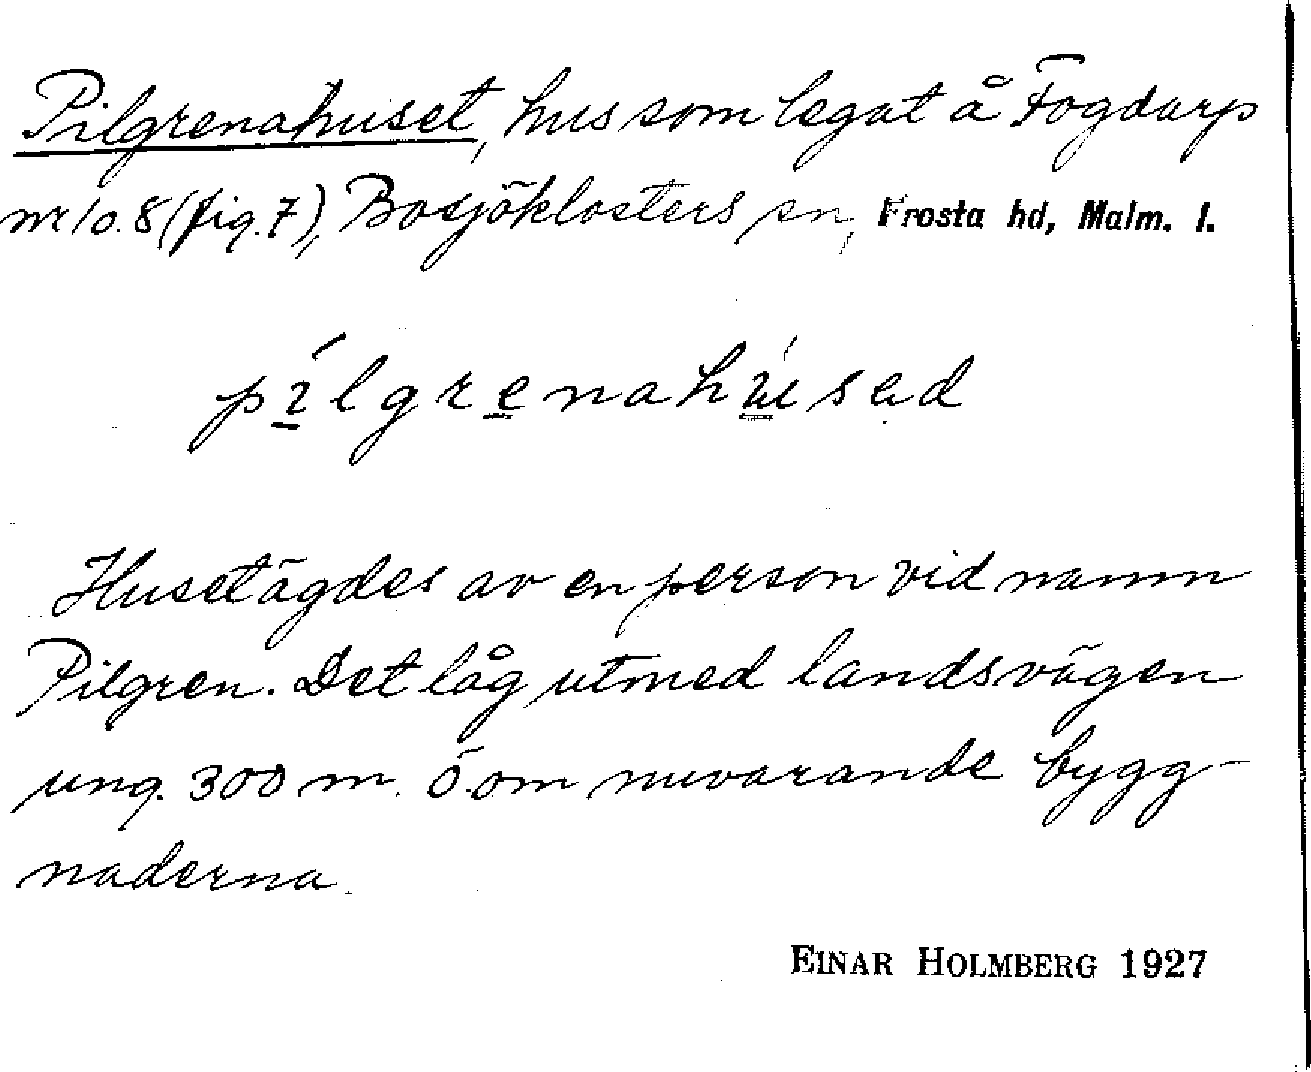 Pilgrenahuset, hus som legat å Fogdarp
nr 1 o. 8 (fig. 7), Bosjöklosters sn, Frosta hd, Malm. l.
pílgrenahúsad
Huset ägdes av en person vid namn
Pilgren. Det låg utmed landsvägen
ung. 300 m. Ö. om nuvarande bygg-
naderna.
EINAR HOLMBERG 1927